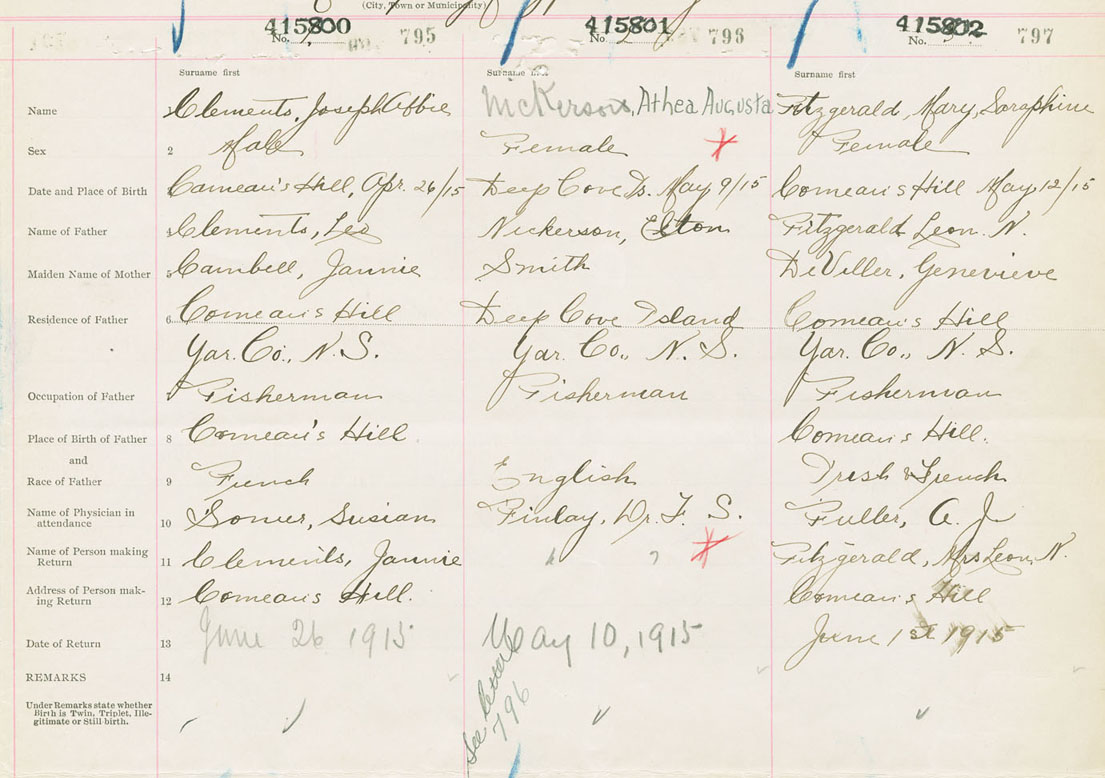 (City, Town or Municipality)
415800 415801 415802
No. 795 No. 796 No. 797
Surname first Surname first Surname first
Name 1 Clements, Joseph Affie Nickerson, Athea Augusta Fitzgerald, Mary, Saraphine
Sex 2 Male Female Female
Date and Place of Birth 3 Comeau's Hill, Apr. 26/15 Deep Cove Is. May 9/15 Comeau's Hill May 12/15
Name of Father 4 Clements, Leo Nickerson, Elton Fitzgerald Leon. N.
Maiden Name of Mother 5 Cambell, Jannie Smith DeViller, Genevieve
Residence of Father 6 Comeau's Hill Deep Cove Island Comeau's Hill
Yar. Co., N. S. Yar. Co., N. S. Yar. Co., N. S.
Occupation of Father 7 Fisherman Fisherman Fisherman
Place of Birth of Father 8 Comeau's Hill Comeau's Hill.
and
Race of Father 9 French English Iresh & French
Name of Physician in
attendance 10 Susian Finlay, Dr. F. S. Fuller, A. J
Name of Person making
Return 11 Clements, Jannie " " Fitzgerald, Mrs Leon, N.
Address of Person mak-
ing Return 12 Comeau's Hill. Comeau's Hill
Date of Return 13 June 26 1915 May 10, 1915 June 1st 1915
REMARKS 14
Under Remarks state whether
Birth is Twin, Triplet, Ille-
gitimate or Still birth.
See letter
796